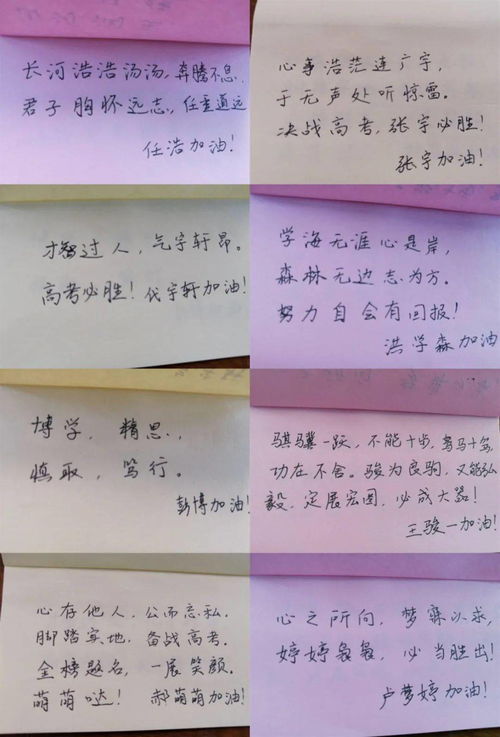 长河浩浩汤汤,奔腾不息.
君子胸怀远志,任重道远
任浩加油!
心事浩茫连广宇,
于无声处听惊雷.
决战高考,张宇必胜!
张宇加油!
才智过人,气宇轩昂。
高考必胜!代宇轩加油!
学海无涯心是岸,
森林无边志为方.
努力自会有回报!
洪学森加油
博学,精思,
慎取,笃行。
彭博加油!
骐骥一跃,不能十步,驽马十驾,
功在不舍。骏为良驹,又能弘
毅,定展宏图,必成大器!
王骏一加油!
心存他人,公而忘私.
脚踏实地,备战高考.
金榜题名,一展笑颜.
萌萌哒!郝萌萌加油!
心之所向,梦寐以求,
婷婷袅袅,必当胜出!
卢梦婷加油!